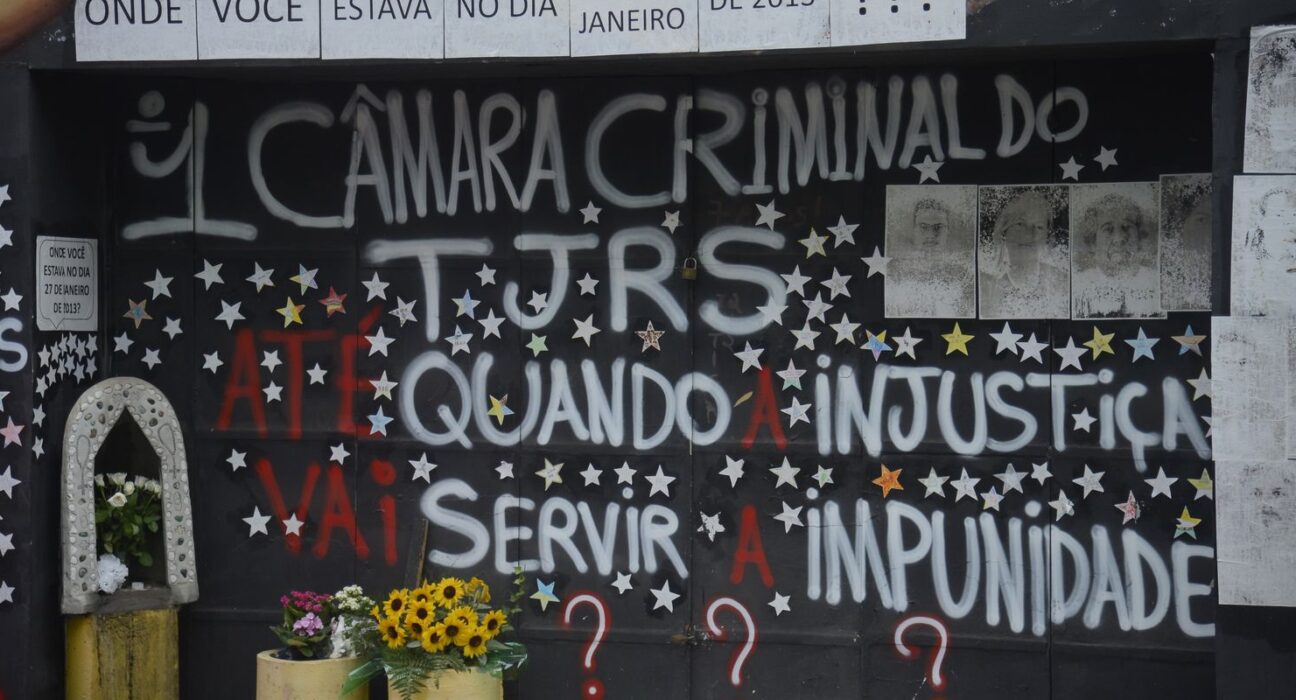 ONDE VOCÊ ESTAVA NO DIA JANEIRO DE 2013 ???
1 CÂMARA CRIMINAL DO
TJRS
ATÉ QUANDO A INJUSTIÇA
VAI SERVIR A IMPUNIDADE
? ? ?
ONDE VOCÊ
ESTAVA NO DIA
27 DE JANEIRO
DE 2013?
S